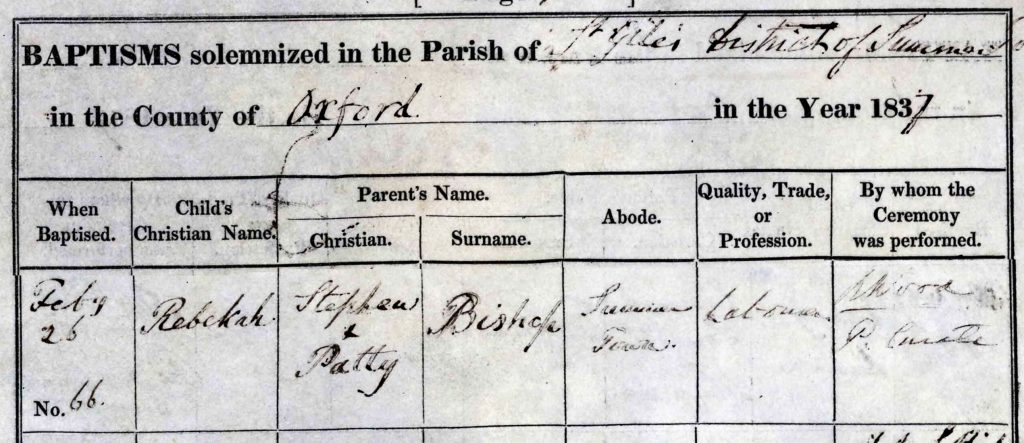 BAPTISMS solemnized in the Parish of St Giles District of Summer
in the County of Oxford. in the Year 1837
When Baptised.
Child's Christian Name.
Parent's Name.
Christian.
Surname.
Abode.
Quality, Trade, or Profession.
By whom the Ceremony was performed.
Feby
26
No. 66.
Rebekah
Stephen
&
Patty
Bishop
Summer
Town.
Labourer
P. Curate